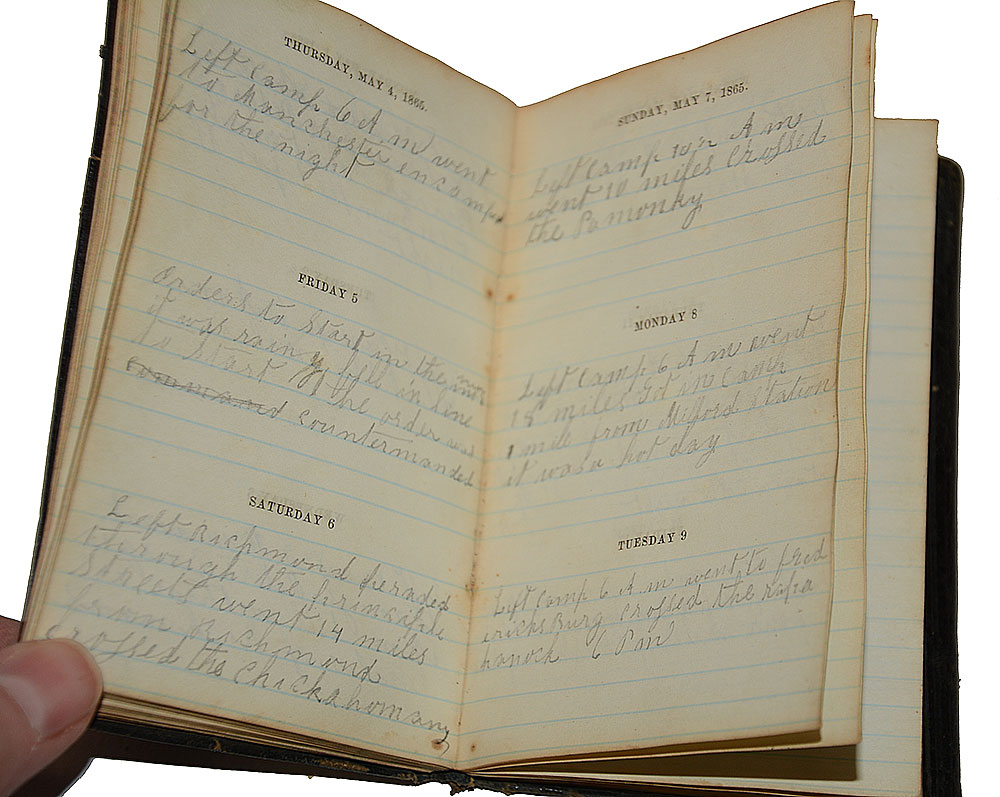 THURSDAY, MAY 4, 1865.
Left Camp 6 A m went
to Manchester encamped
for the night
FRIDAY 5
Orders to Start in the
it was rainy fell in line
to Start the order was
command countermanded
SATURDAY 6
Left Richmond peraded
through the principle
Streets went 14 miles
from Richmond
crossed the Chickahomany
SUNDAY, MAY 7, 1865.
Left Camp 10½ A m
went 10 miles Crossed
the Pamonky
MONDAY 8
Left Camp 6 A m went
18 miles Got in Camp
1 mile from Milford Station
it was a hot day
TUESDAY 9
Left Camp 6 A m went to fred
ericksburg crossed the rapa
hanock 6 Pm